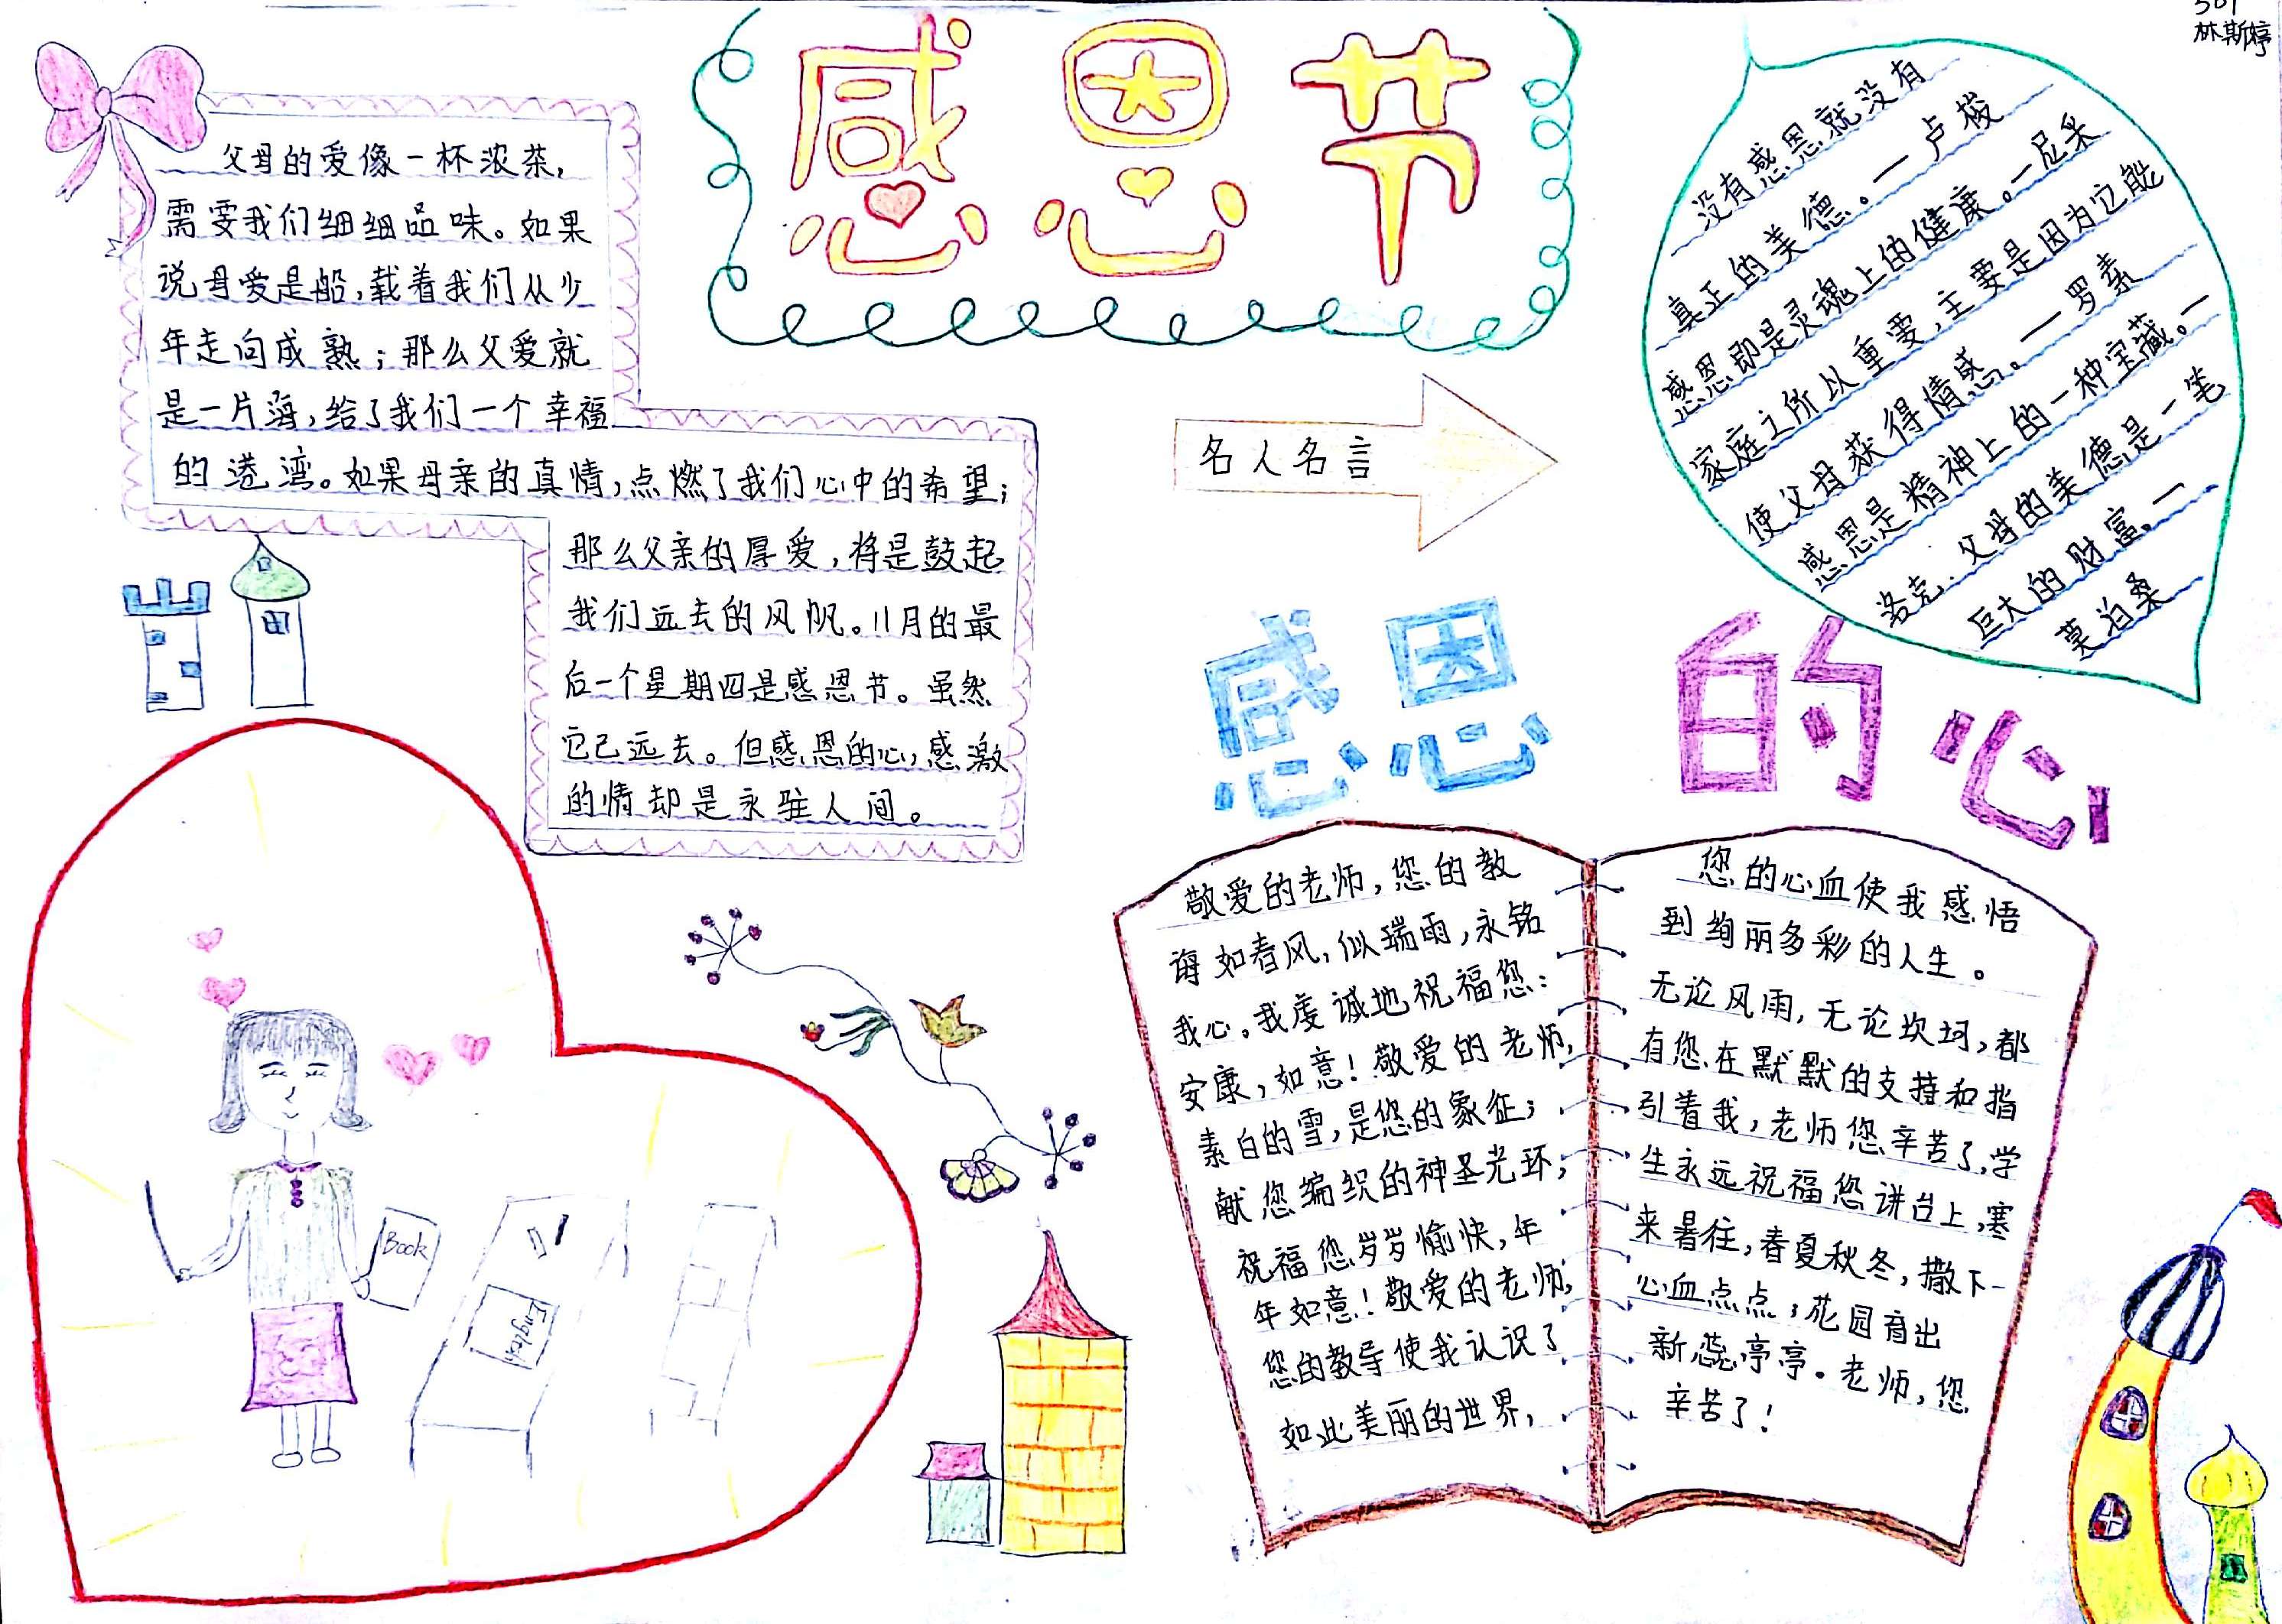 501
林斯婷
感恩节
父母的爱像一杯浓茶,
需要我们细细品味。如果
说母爱是船,载着我们从少
年走向成熟;那么父爱就
是一片海,给了我们一个幸福
的港湾。如果母亲的真情,点燃了我们心中的希望;
那么父亲的厚爱,将是鼓起
我们远去的风帆。11月的最
后一个星期四是感恩节。虽然
它已远去。但感恩的心,感激
的情却是永驻人间。
名人名言
没有感恩就没有
真正的美德。一卢梭
感恩即是灵魂上的健康。一尼采
家庭之所以重要,主要是因为它能
使父母获得情感。一罗素
感恩是精神上的一种宝藏。一
洛克.父母的美德是一笔
巨大的财富。一
莫泊桑
感恩的心
敬爱的老师,您的教
诲如春风,似瑞雨,永铭
我心。我虔诚地祝福您:
安康,如意!敬爱的老师,
素白的雪,是您的象征;
献您编织的神圣光环;
祝福您岁岁愉快,年
年如意!敬爱的老师,
您的教导使我认识了
如此美丽的世界,
您的心血使我感悟
到绚丽多彩的人生。
无论风雨,无论坎坷,都
有您在默默的支持和指
引着我,老师您辛苦了,学
生永远祝福您讲台上,寒
来暑往,春夏秋冬,撒下一
心血点点;花园育出
新蕊亭亭。老师,您
辛苦了!
Book
English